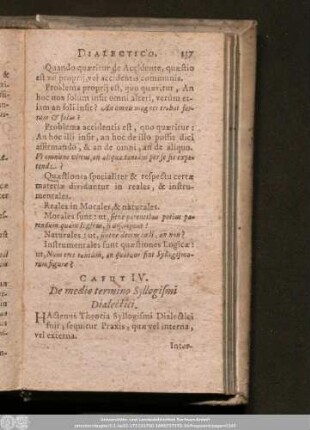 DIALECTICO. 157
Quando quæritur de Accidente, quæstio
est vo proprij, vel accidentis communis.
Problema proprij est, quo quæritur, An
hoc non solùm insit omni alteri, verùm et-
iam an soli insit? An omnis magnes trahit fer-
rum & solus?
Problema accidentis est, quo quæritur:
An hoc illi insit, an hoc de illo possit dici
affirmando, & an de omni, an de aliquo.
Vt omnisne virtus, an aliqua tantùm per se sit expe-
tenda?
Quæstiones specialiter & respectu certæ
materiæ dividuntur in reales, & instru-
mentales.
Reales in Morales & naturales.
Morales sunt: ut, sitne parentibus potius pa-
rendum quàm legibus, si dissentiant?
Naturales: ut, sintne decem cœli, an non?
Instrumentales sunt quæstiones Logicæ:
ut, Num tres tantùm, an quatuor sint Syllogismo-
rum figuræ?
CAPUT IV.
De medio termino Syllogismi
Dialectici.
HActenus Theoria Syllogismi Dialectici
fuit, sequitur Praxis, quæ vel interna,
vel externa.
Inter-